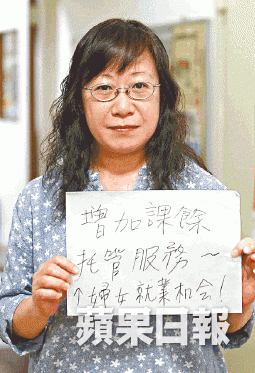 增加課餘
托管服務～
↑婦女就業机会！
蘋果日報